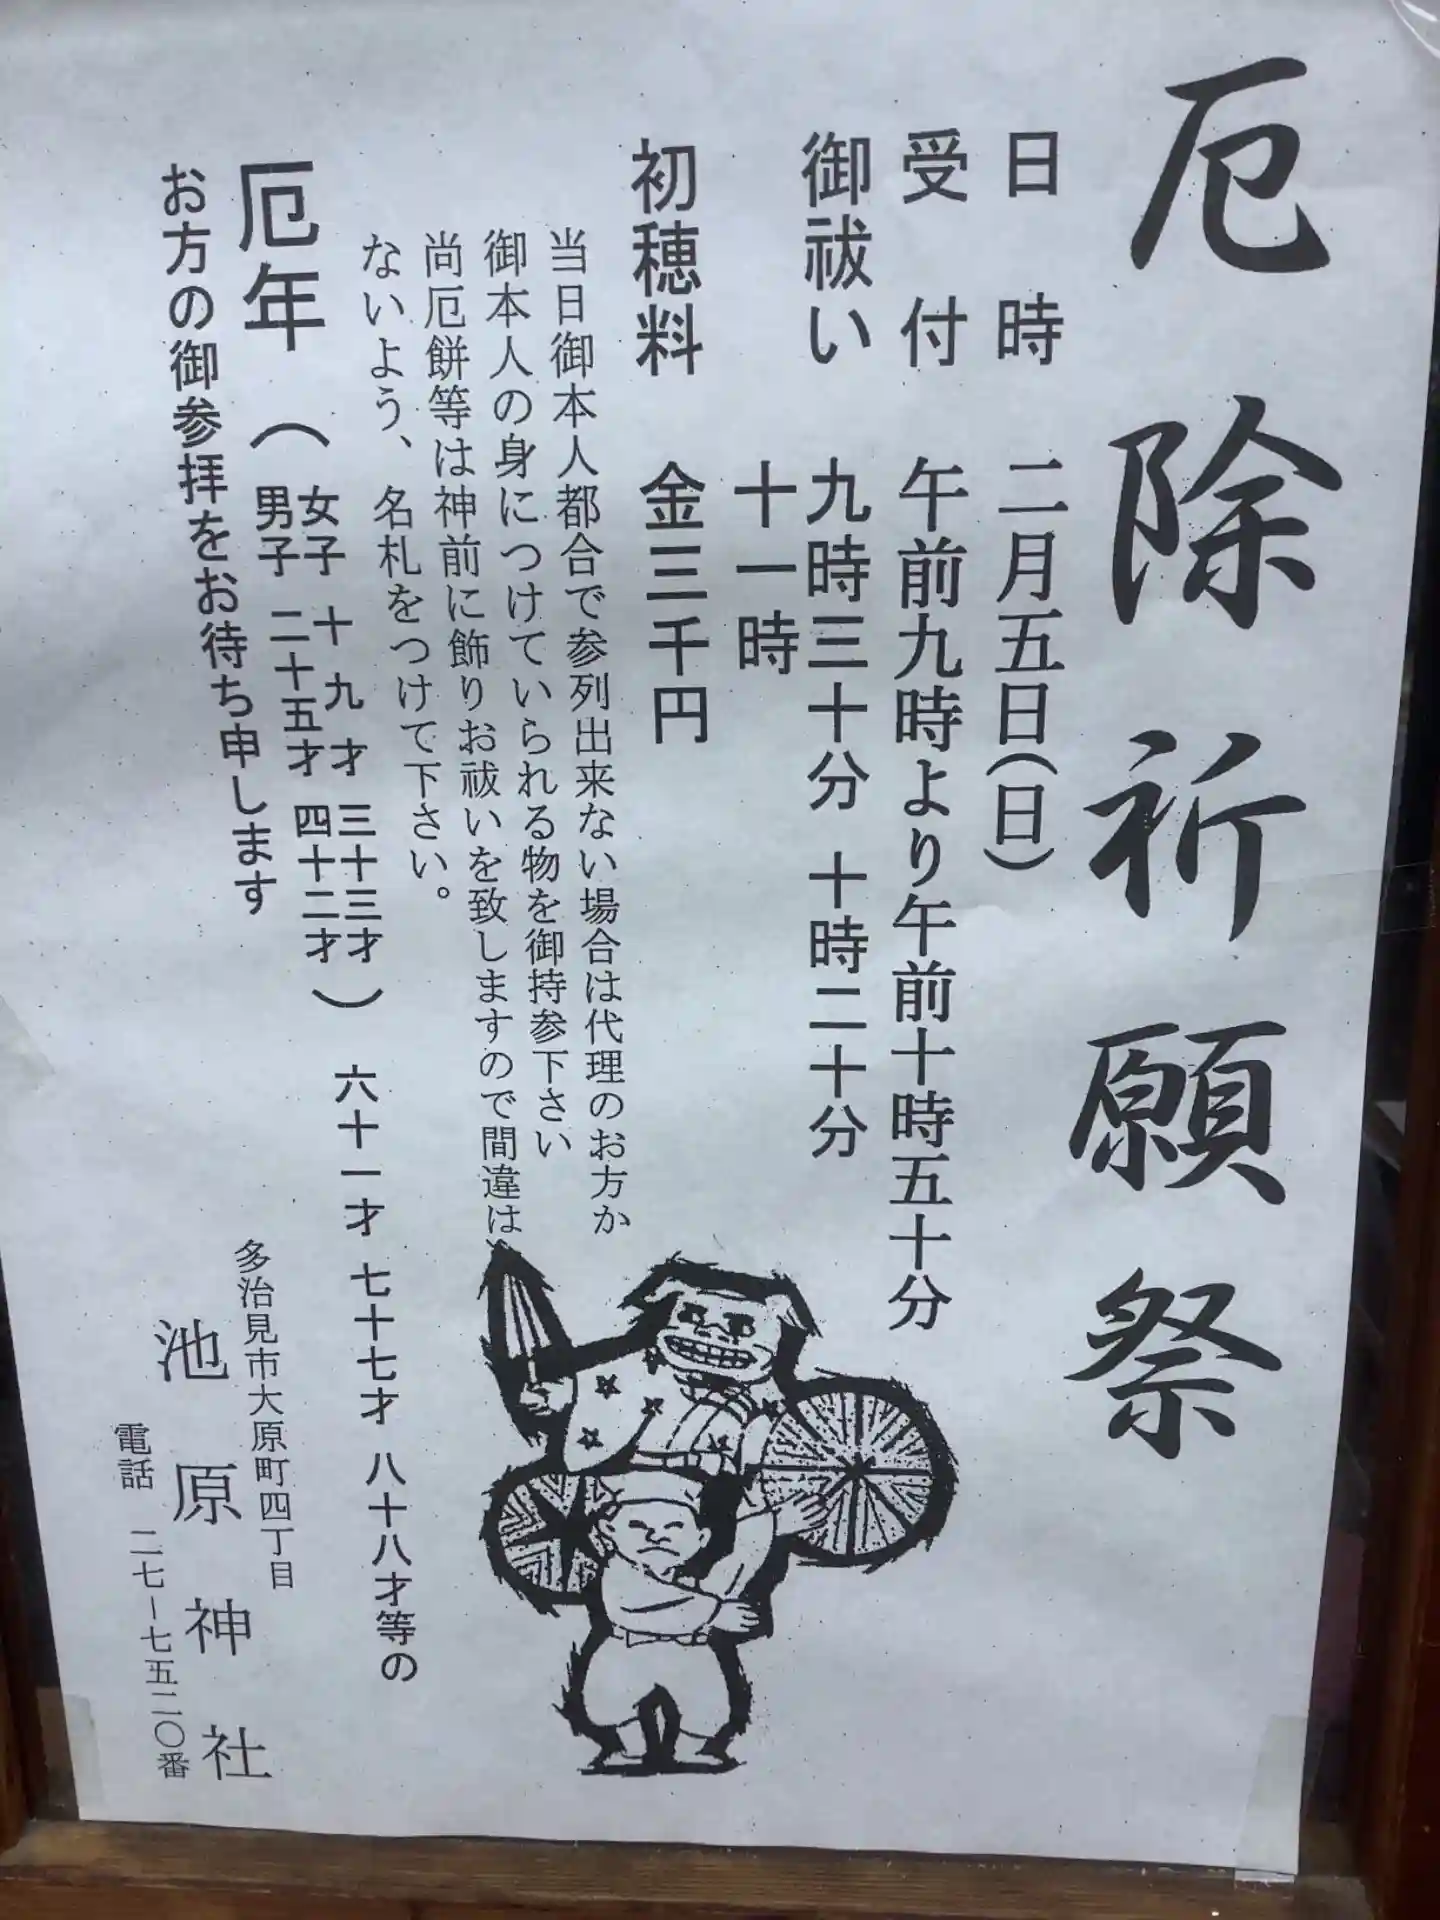 厄除祈願祭
日時 二月五日(日)
受付 午前九時より午前十時五十分
御祓い 九時三十分 十時二十分
十一時
初穂料 金三千円
当日御本人都合で参列出来ない場合は代理のお方か
御本人の身につけていられる物を御持参下さい
尚厄餅等は神前に飾りお祓いを致しますので間違は
ないよう、名札をつけて下さい。
厄年(女子 十九才 三十三才
男子 二十五才 四十二才) 六十一才 七十七才 八十八才等の
お方の御参拝をお待ち申します
多治見市大原町四丁目
池原神社
電話 二七-七五二〇番